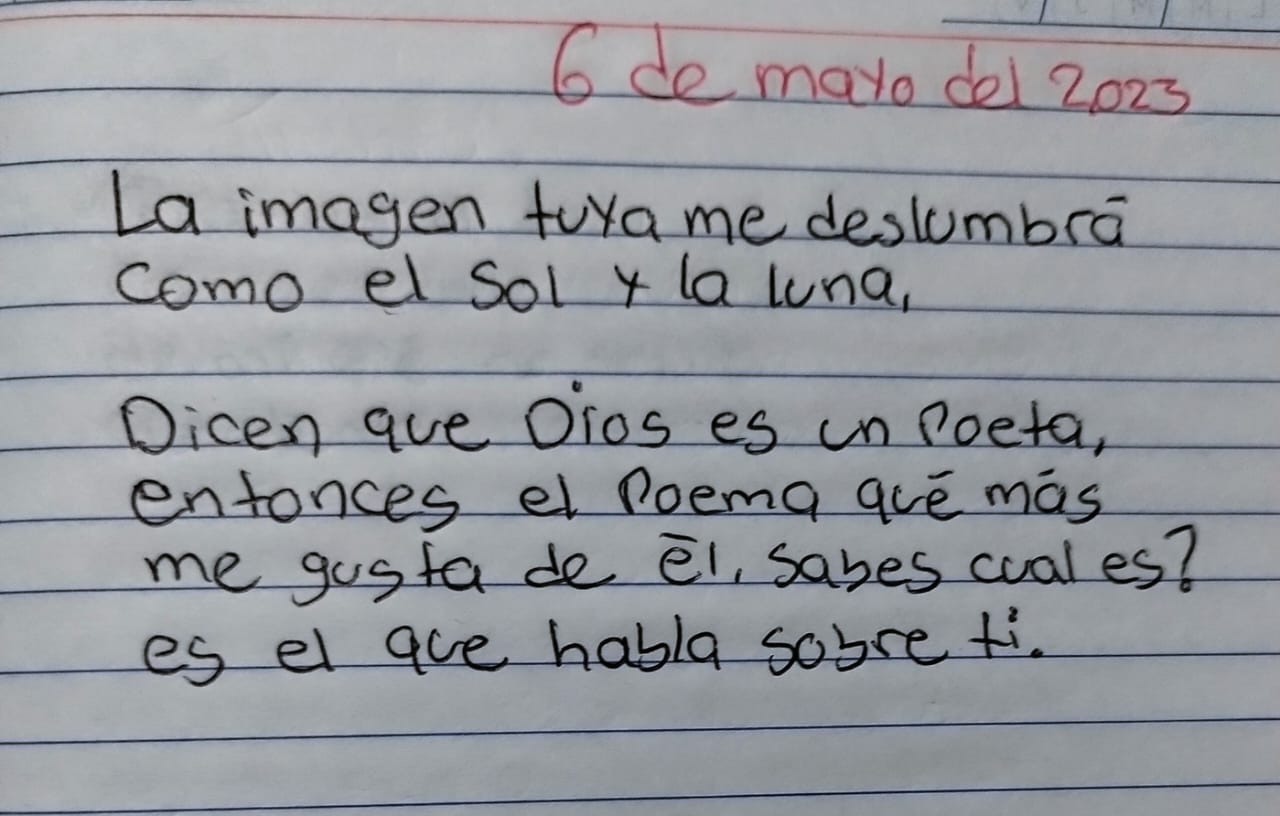 6 de mayo del 2023
La imagen tuya me deslumbrá
como el sol y la luna,
Dicen que Dios es un Poeta,
entonces el Poema qué más
me gusta de él, sabes cual es?
es el que habla sobre ti.